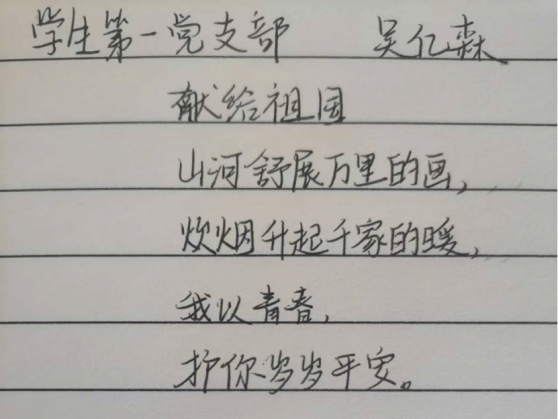 学生第一党支部 吴亿森
献给祖国
山河舒展万里的画,
炊烟升起千家的暖,
我以青春,
护你岁岁平安。